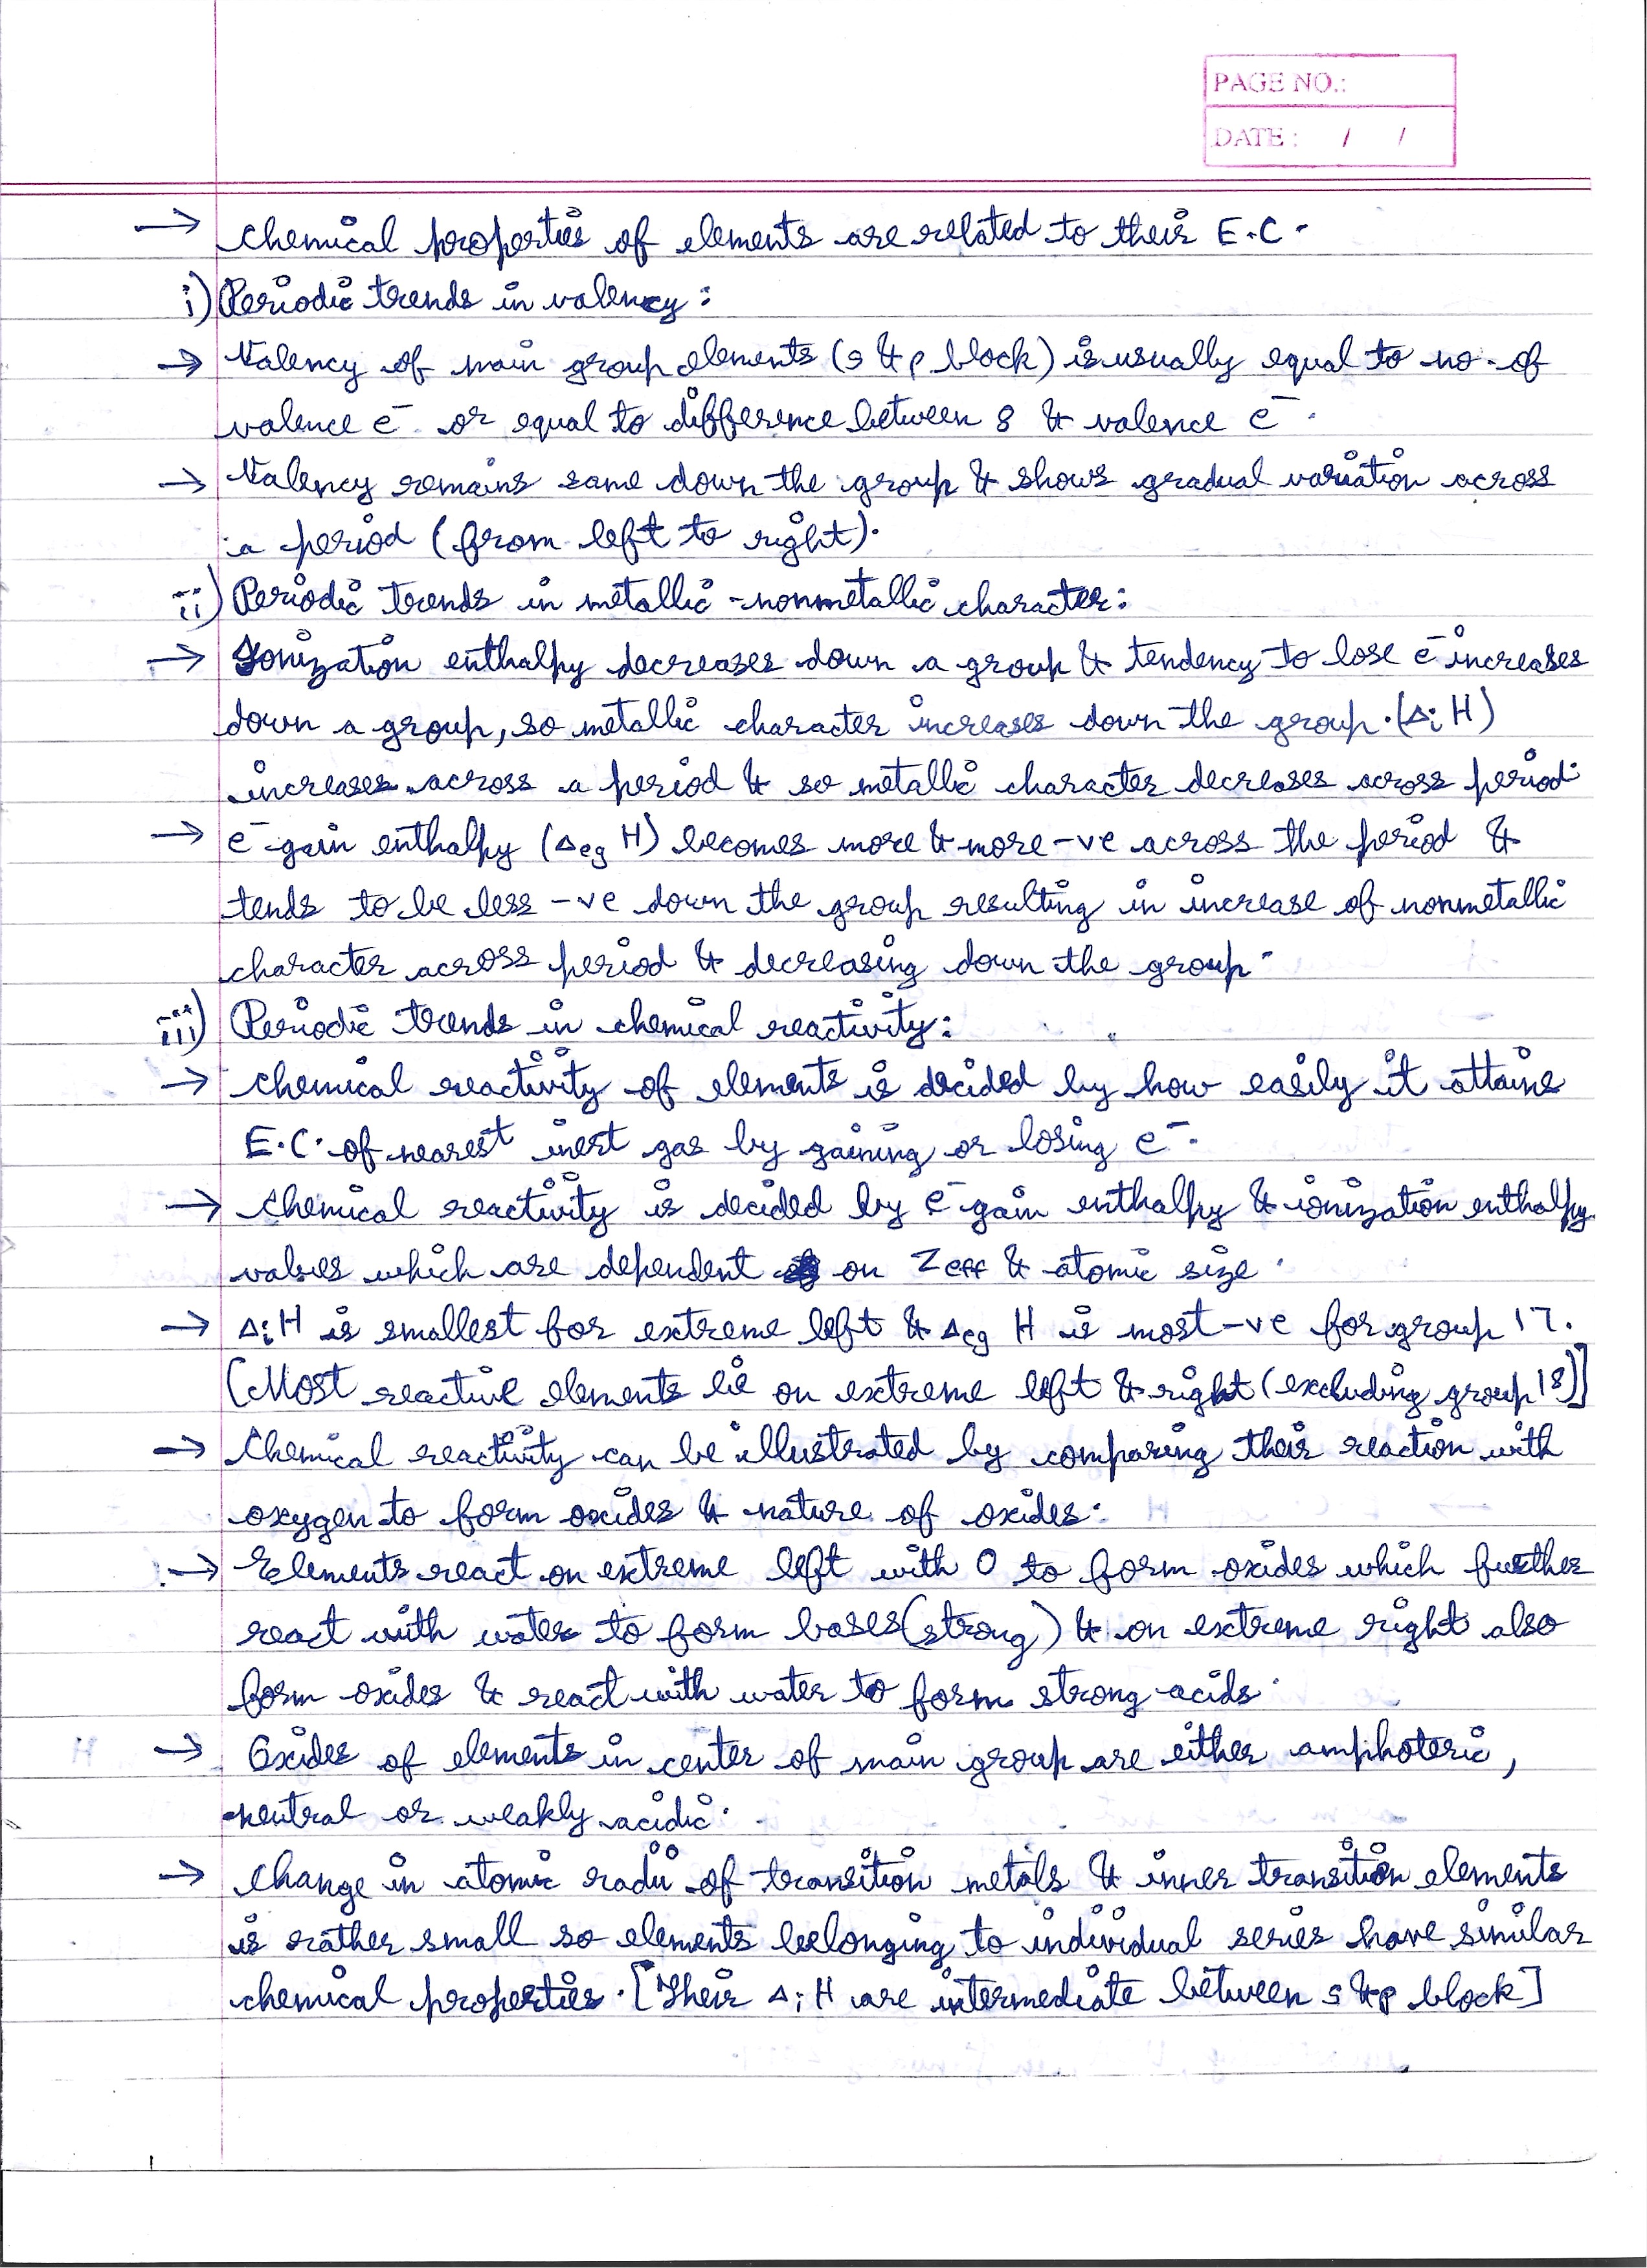 PAGE NO.:
DATE : / /
→ Chemical properties of elements are related to their E.C.
i) Periodic trends in valency :
→ Valency of main group elements (s & p block) is usually equal to no. of
valence e⁻ or equal to difference between 8 & valence e⁻.
→ Valency remains same down the group & shows gradual variation across
a period (from left to right).
ii) Periodic trends in metallic - nonmetallic character :
→ Ionization enthalpy decreases down a group & tendency to lose e⁻ increases
down a group, so metallic character increases down the group. (ΔiH)
increases across a period & so metallic character decreases across period.
→ e⁻ gain enthalpy (Δeg H) becomes more & more -ve across the period &
tends to be less -ve down the group resulting in increase of nonmetallic
character across period & decreasing down the group.
iii) Periodic trends in chemical reactivity :
→ Chemical reactivity of elements is decided by how easily it attains
E.C. of nearest inert gas by gaining or losing e⁻.
→ Chemical reactivity is decided by e⁻ gain enthalpy & ionization enthalpy
values which are dependent on Zeff & atomic size.
→ ΔiH is smallest for extreme left & Δeg H is most -ve for group 17.
[Most reactive elements lie on extreme left & right (excluding group 18)]
→ Chemical reactivity can be illustrated by comparing their reaction with
oxygen to form oxides & nature of oxides :
→ Elements react on extreme left with O to form oxides which further
react with water to form bases (strong) & on extreme right also
form oxides & react with water to form strong acids.
→ Oxides of elements in center of main group are either amphoteric,
neutral or weakly acidic.
→ Change in atomic radii of transition metals & inner transition elements
is rather small so elements belonging to individual series have similar
chemical properties. [Their ΔiH are intermediate between s & p block]